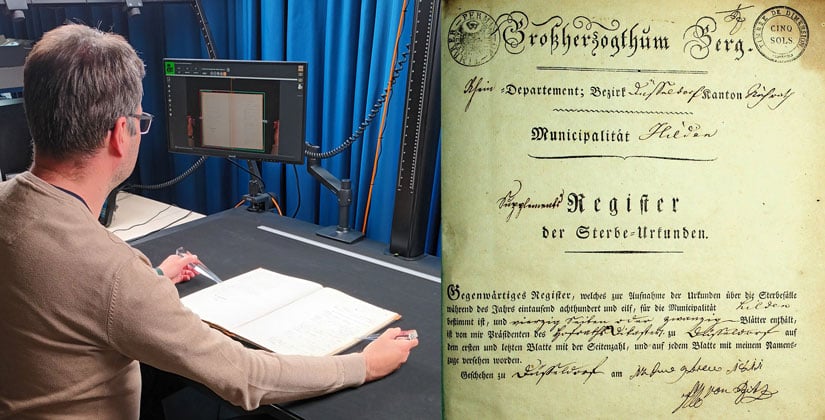 Großherzogthum Berg.
TIMBRE DE DIMENSION
CINQ
SOLS.
Rhein-Departement; Bezirk Düsseldorf Kanton
Municipalität Hilden
Supplements Register
der Sterbe-Urkunden.
Gegenwärtiges Register, welches zur Aufnahme der Urkunden über die Sterbefälle
während des Jahrs eintausend achthundert und eilf, für die Municipalität Hilden
bestimmt ist, und vierzig Blätter enthält,
ist von mir Präsidenten des zu Düsseldorf auf
den ersten und letzten Blatte mit der Seitenzahl, und auf jedem Blatte mit meinem Namens-
zuge versehen worden.
Geschehen zu Düsseldorf am 1811